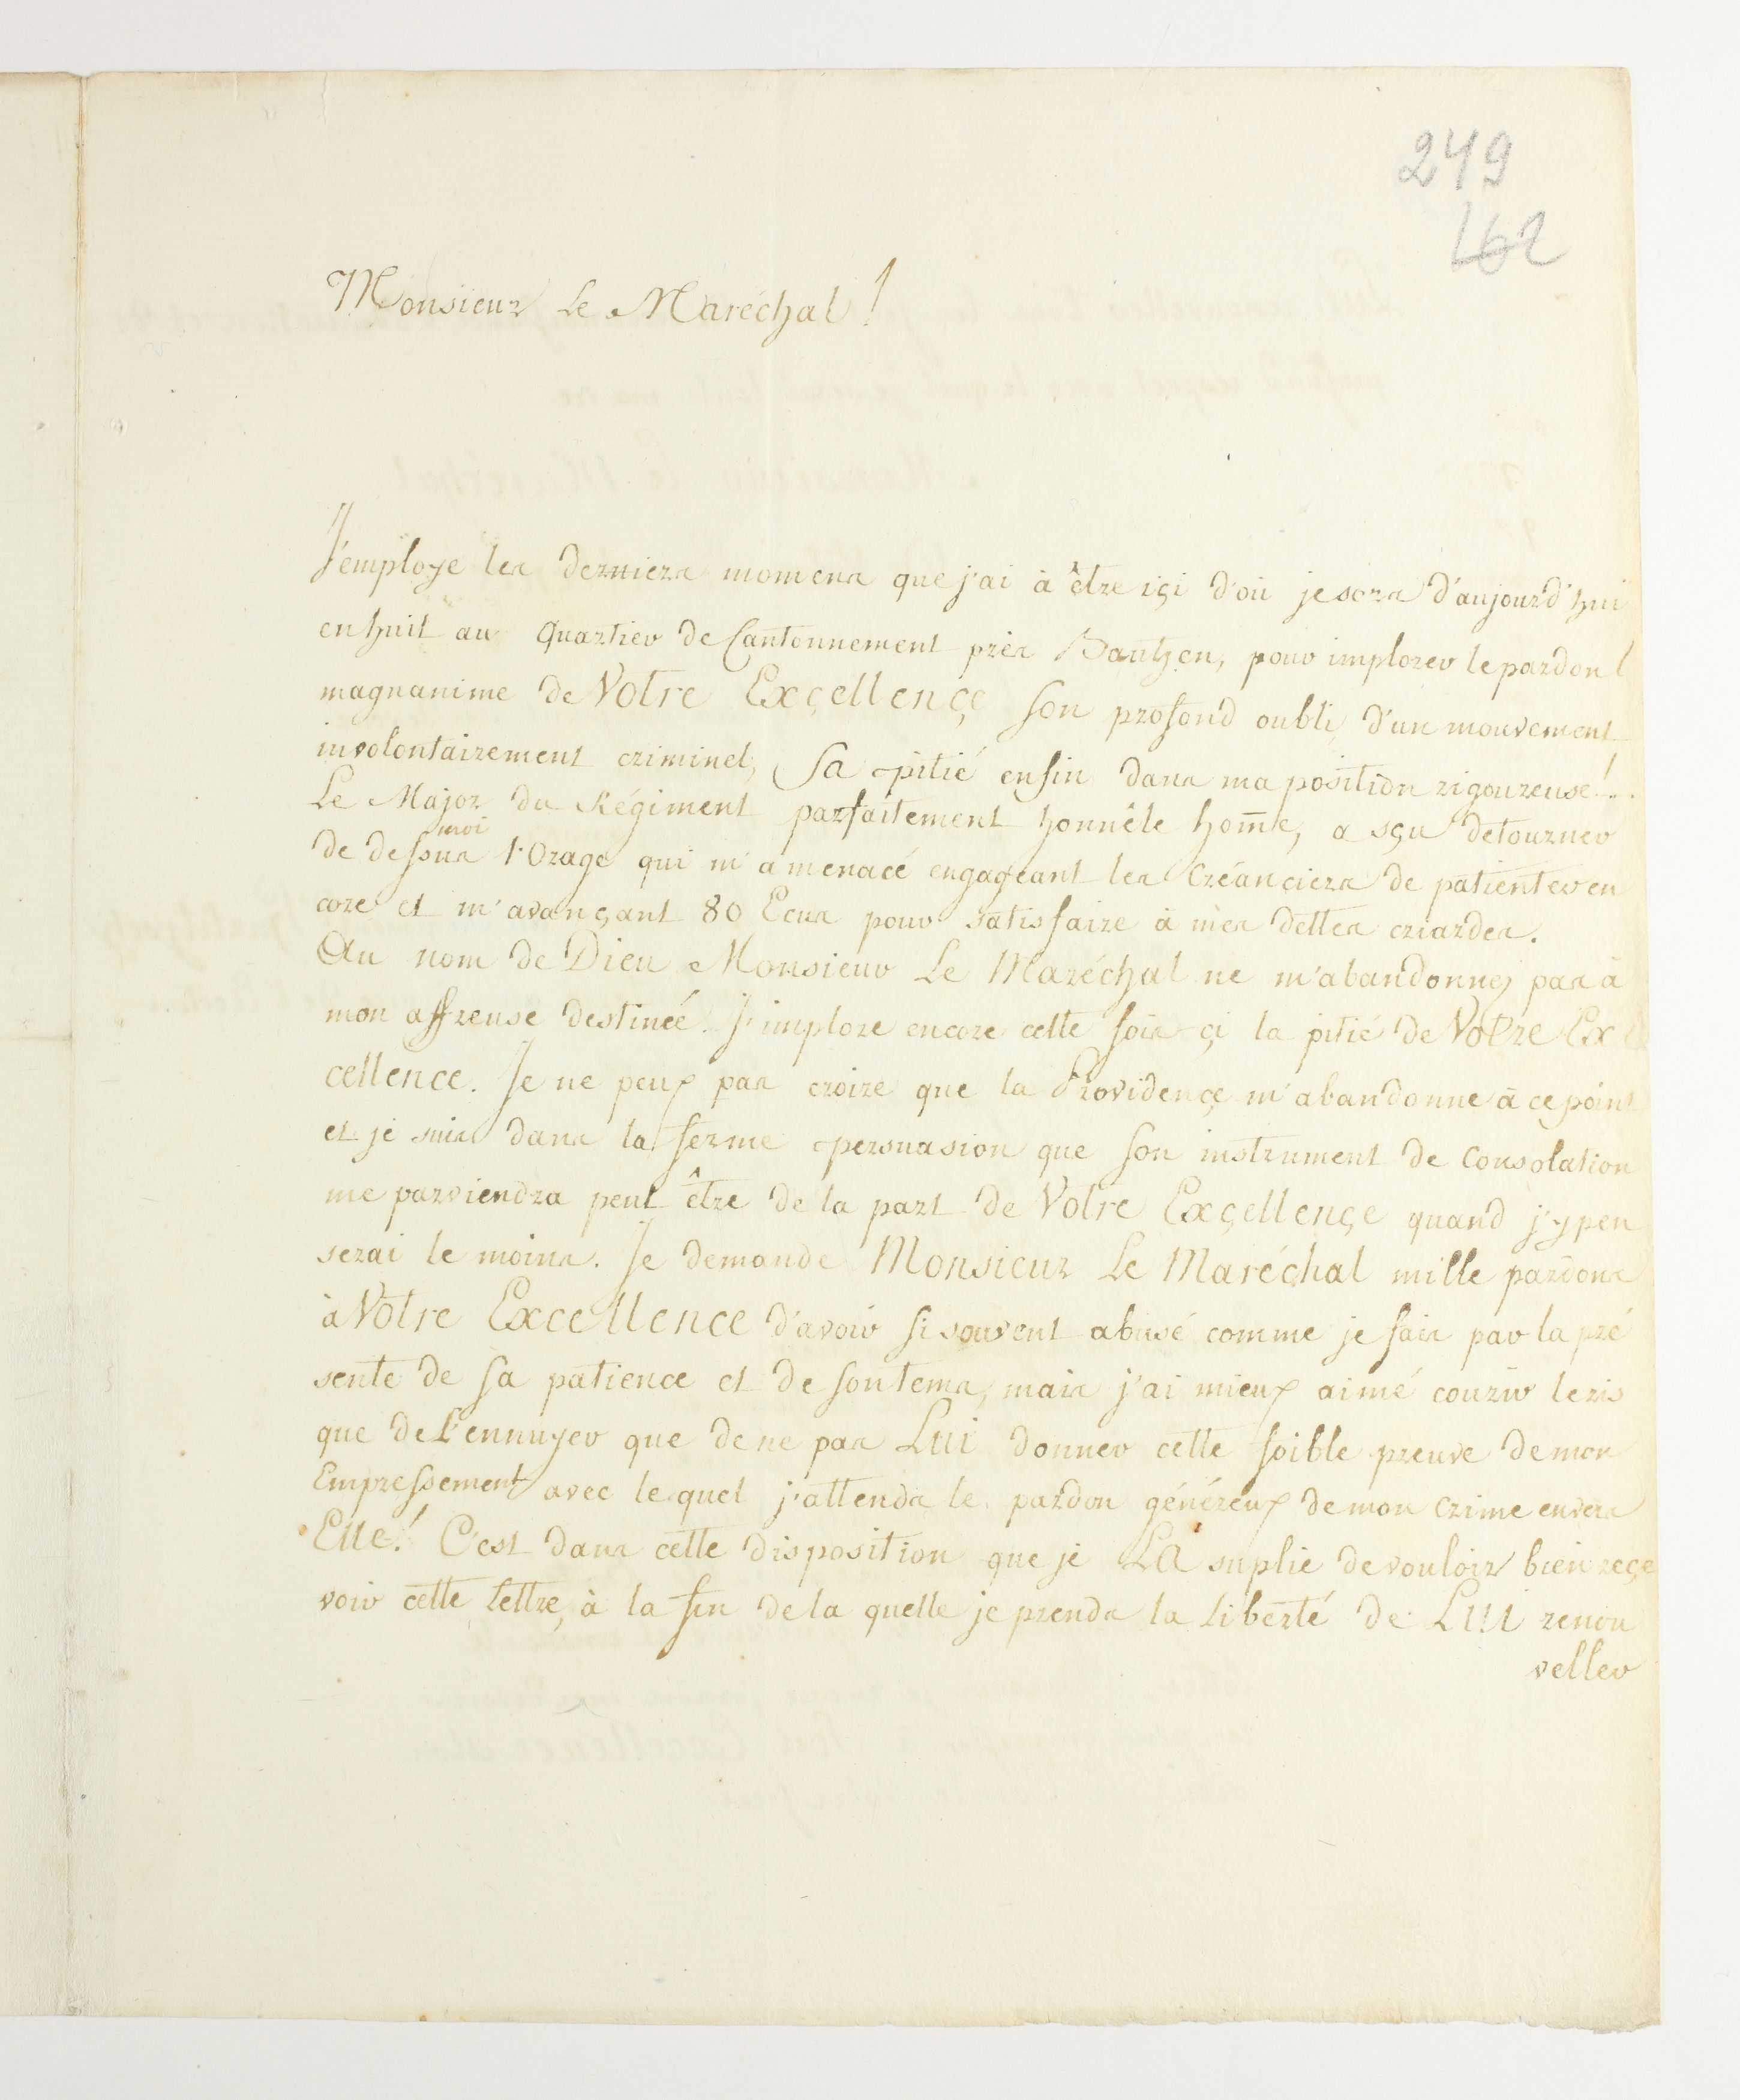 249
162
Monsieur Le Maréchal!
J'employe les derniers momens que j'ai à être içi d'où je sors d'aujourd'hui
en huit au Quartier de Cantonnement près Bautzen, pour implorer le pardon
magnanime de Votre Exçellençe Son profond oubli d'un mouvement
involontairement criminel, Sa pitié enfin dans ma position rigoureuse!..
Le Major du Régiment parfaitement honnête hom̄e, a sçu detourner
de dessus moi l'Orage qui m'a menacé engageant les Créanciers de patienter en
core et m'avançant 80 Ecus pour satisfaire à mes dettes criardes.
Au nom de Dieu Monsieur Le Maréchal ne m'abandonnez pas à
mon affreuse destinée. J'implore encore cette fois çi la pitié de Votre Ex
cellence. Je ne peux pas croire que la Providençe m'abandonne à ce point
et je suis dans la ferme persuasion que Son instrument de Consolation
me parviendra peut être de la part de Votre Exçellençe quand j'y pen
serai le moins. Je demande Monsieur Le Maréchal mille pardons
à Votre Excellence d'avoir si souvent abusé comme je fais par la pré
sente de Sa patience et de Son tems, mais j'ai mieux aimé courir le ris
que de L'ennuyer que de ne pas Lui donner cette foible preuve de mon
Empressement avec le quel j'attends le pardon généreux de mon Crime envers
Elle! C'est dans cette disposition que je LA suplie de vouloir bien reçe
voir cette lettre, à la fin de la quelle je prends la liberté de LUI renou
veller